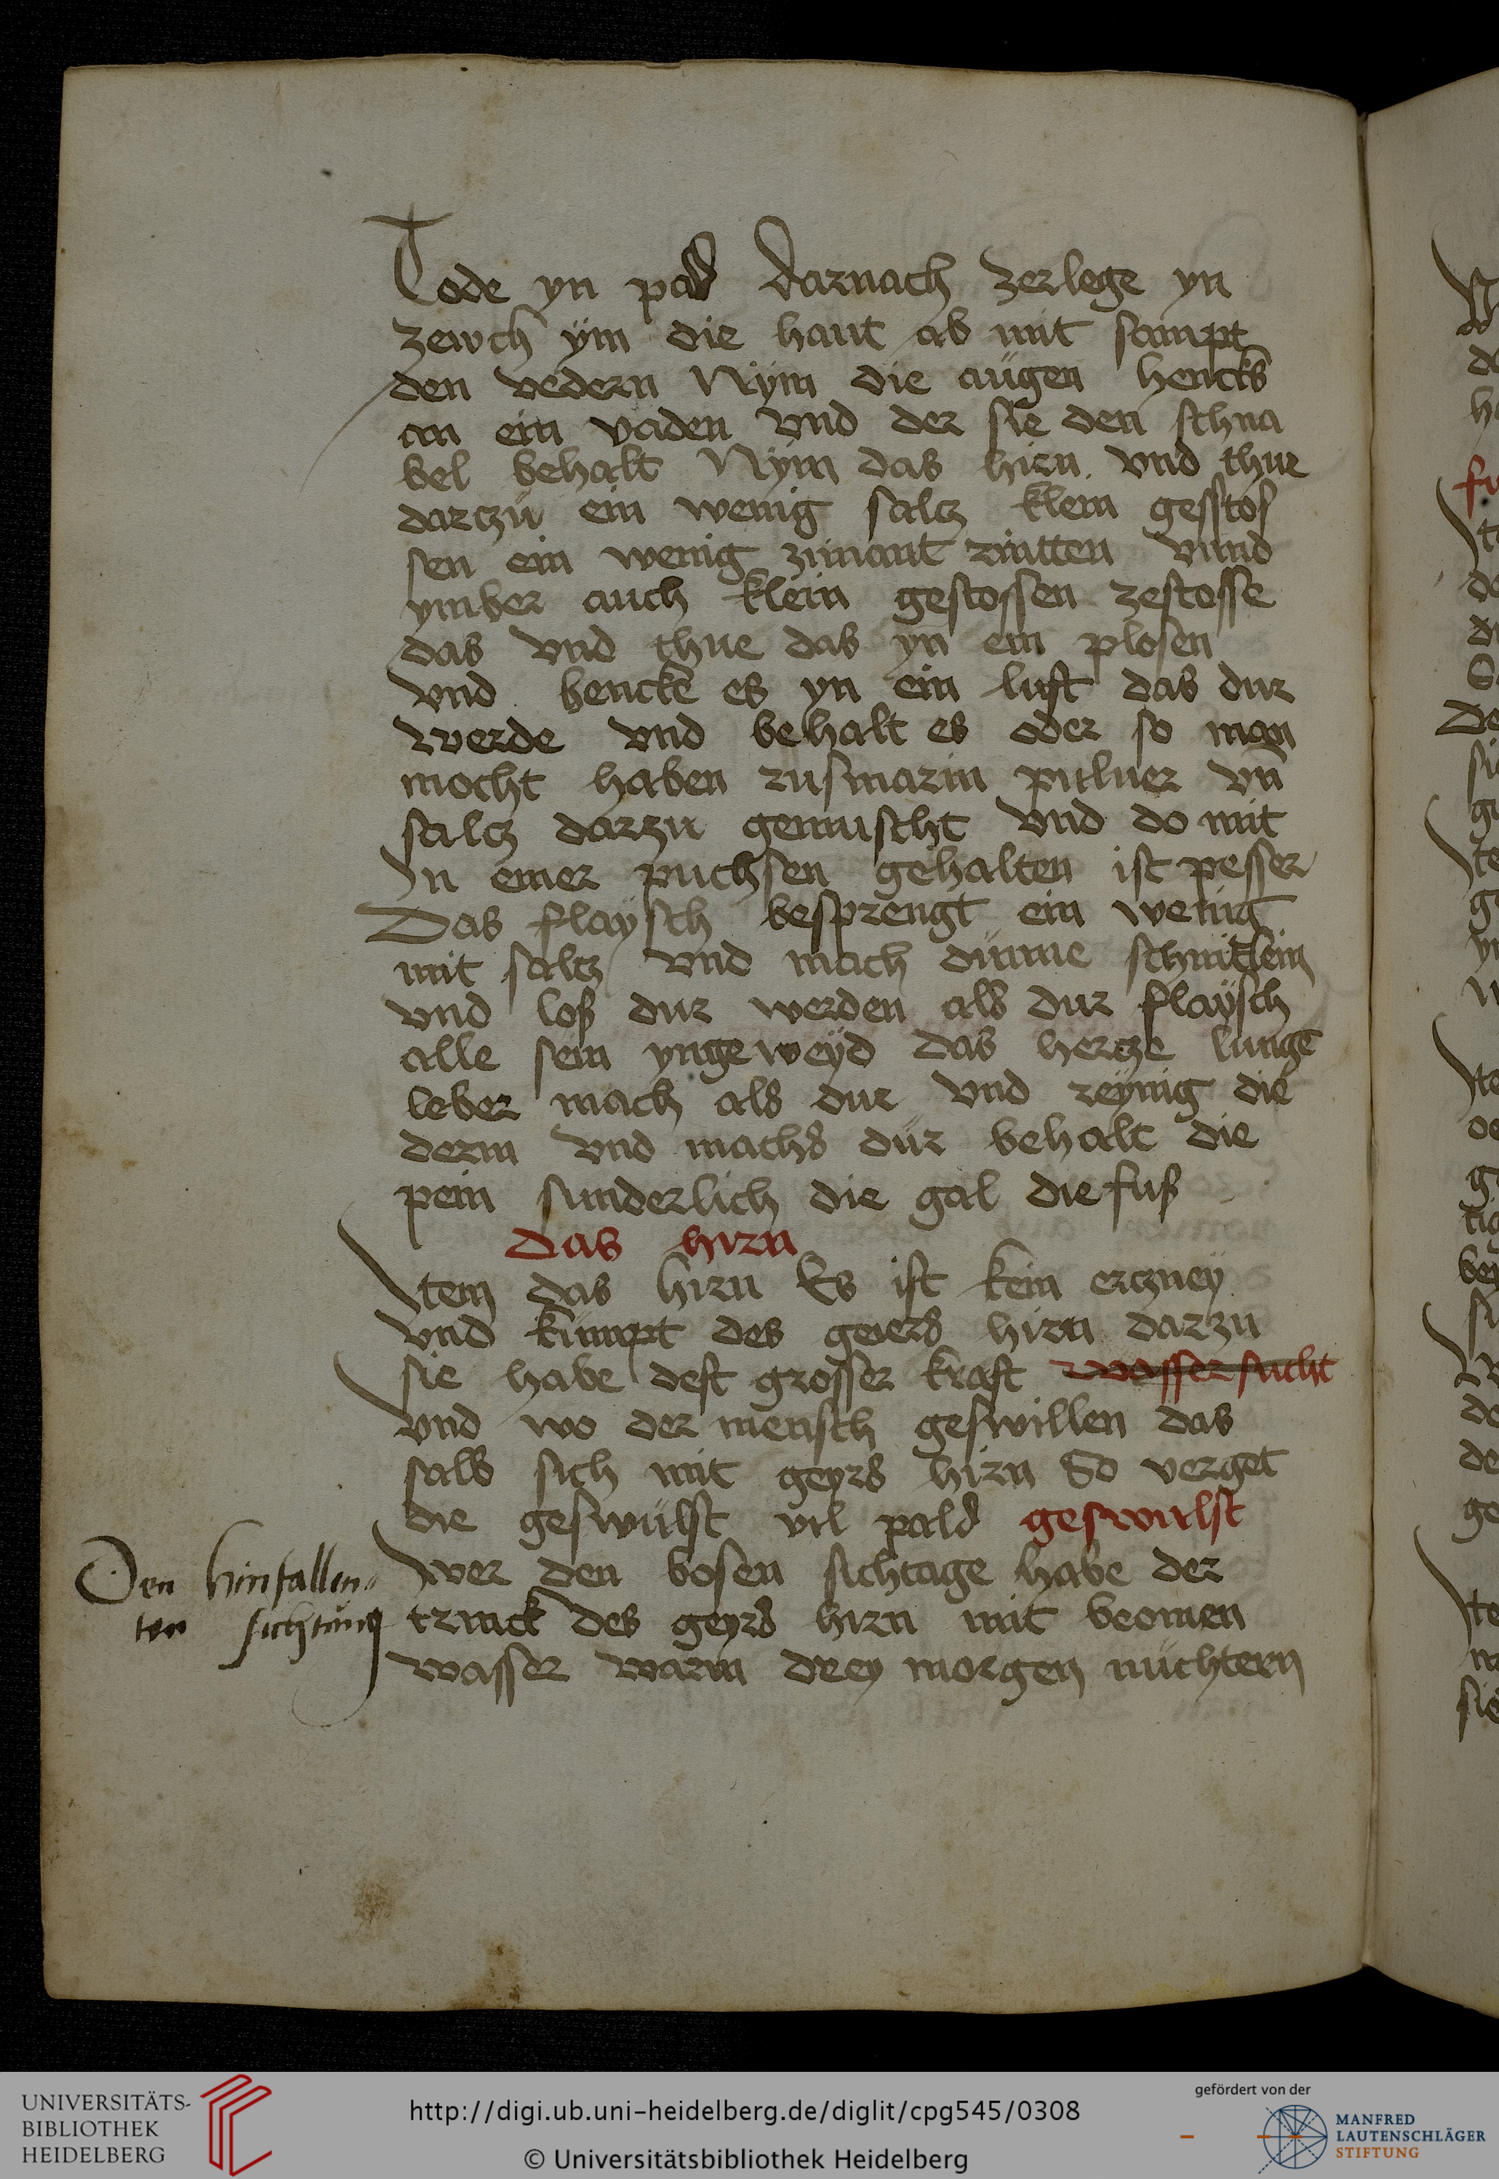 Tode yn pald Darnach zerlege yn
zewch ÿm die haut ab mit sampt
den vedern Nÿm die aügen hencks
an ein vaden vnd der sie den schna
bel behalt Nÿm das hirn vnd thue
darczü ein wenig salcz klein gestos
sen ein wenig zimant rintten vnnd
ymber auch klein gestossen zestosse
das vnd thue das yn ein plosen
vnd hencke es yn ein luft das dur
werde vnd behalt es oder so man
mocht haben rusmarin puluer vn̄
salcz darzu gemischt vnd do mit
In einer puchsen gehalten ist pesser
Das flaÿsch besprengt ein wenig
mit saltz vnd mach dünne schnitlein
vnd loß dur werden als dur flaÿsch
alle sein yngeweÿd das hercze lunge
leber mach als dur vnd reÿnig die
derm vnd machs dür behalt die
pein sunderlich die gal die fuß
Das hirn
Item das hirn Es ist kein erczneÿ
vnd kümpt des geiers hirn darzu
sie habe dest grosser kraft wasser sucht
vnd wo der mensch geswillen das
salb sich mit geyrs hirn So verget
die geswülst vil pald geswulst
Wer den bosen sichtage habe der
trinck des geyrs hirn mit beomen
wasser warm drey morgen nüchtern
Den hinfallen=
ten sichtung
UNIVERSITÄTS-
BIBLIOTHEK
HEIDELBERG
http://digi.ub.uni-heidelberg.de/diglit/cpg545/0308
© Universitätsbibliothek Heidelberg
gefördert von der
MANFRED
LAUTENSCHLÄGER
STIFTUNG